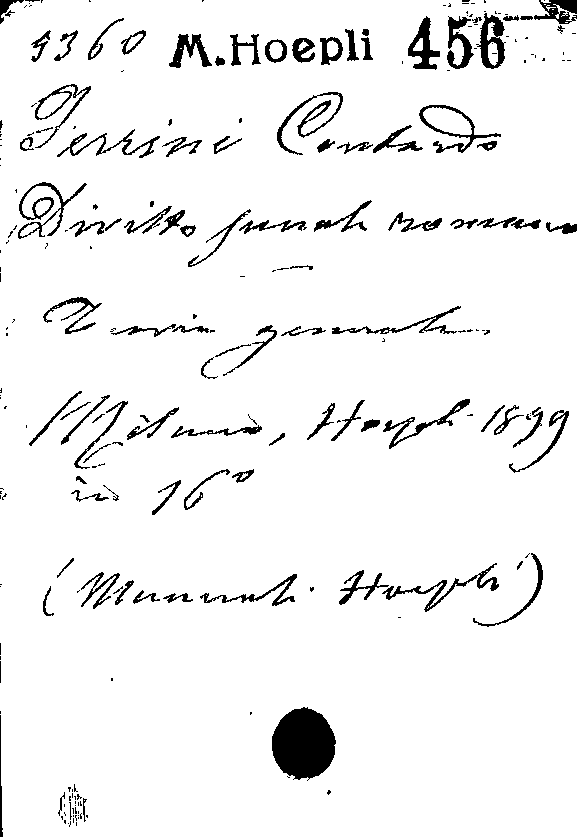 5360 M.Hoepli 456
Ferrini Contardo
Diritto penale romano
—
Teorie generali
Milano, Hoepli 1899
in 16°
(Manuali Hoepli)